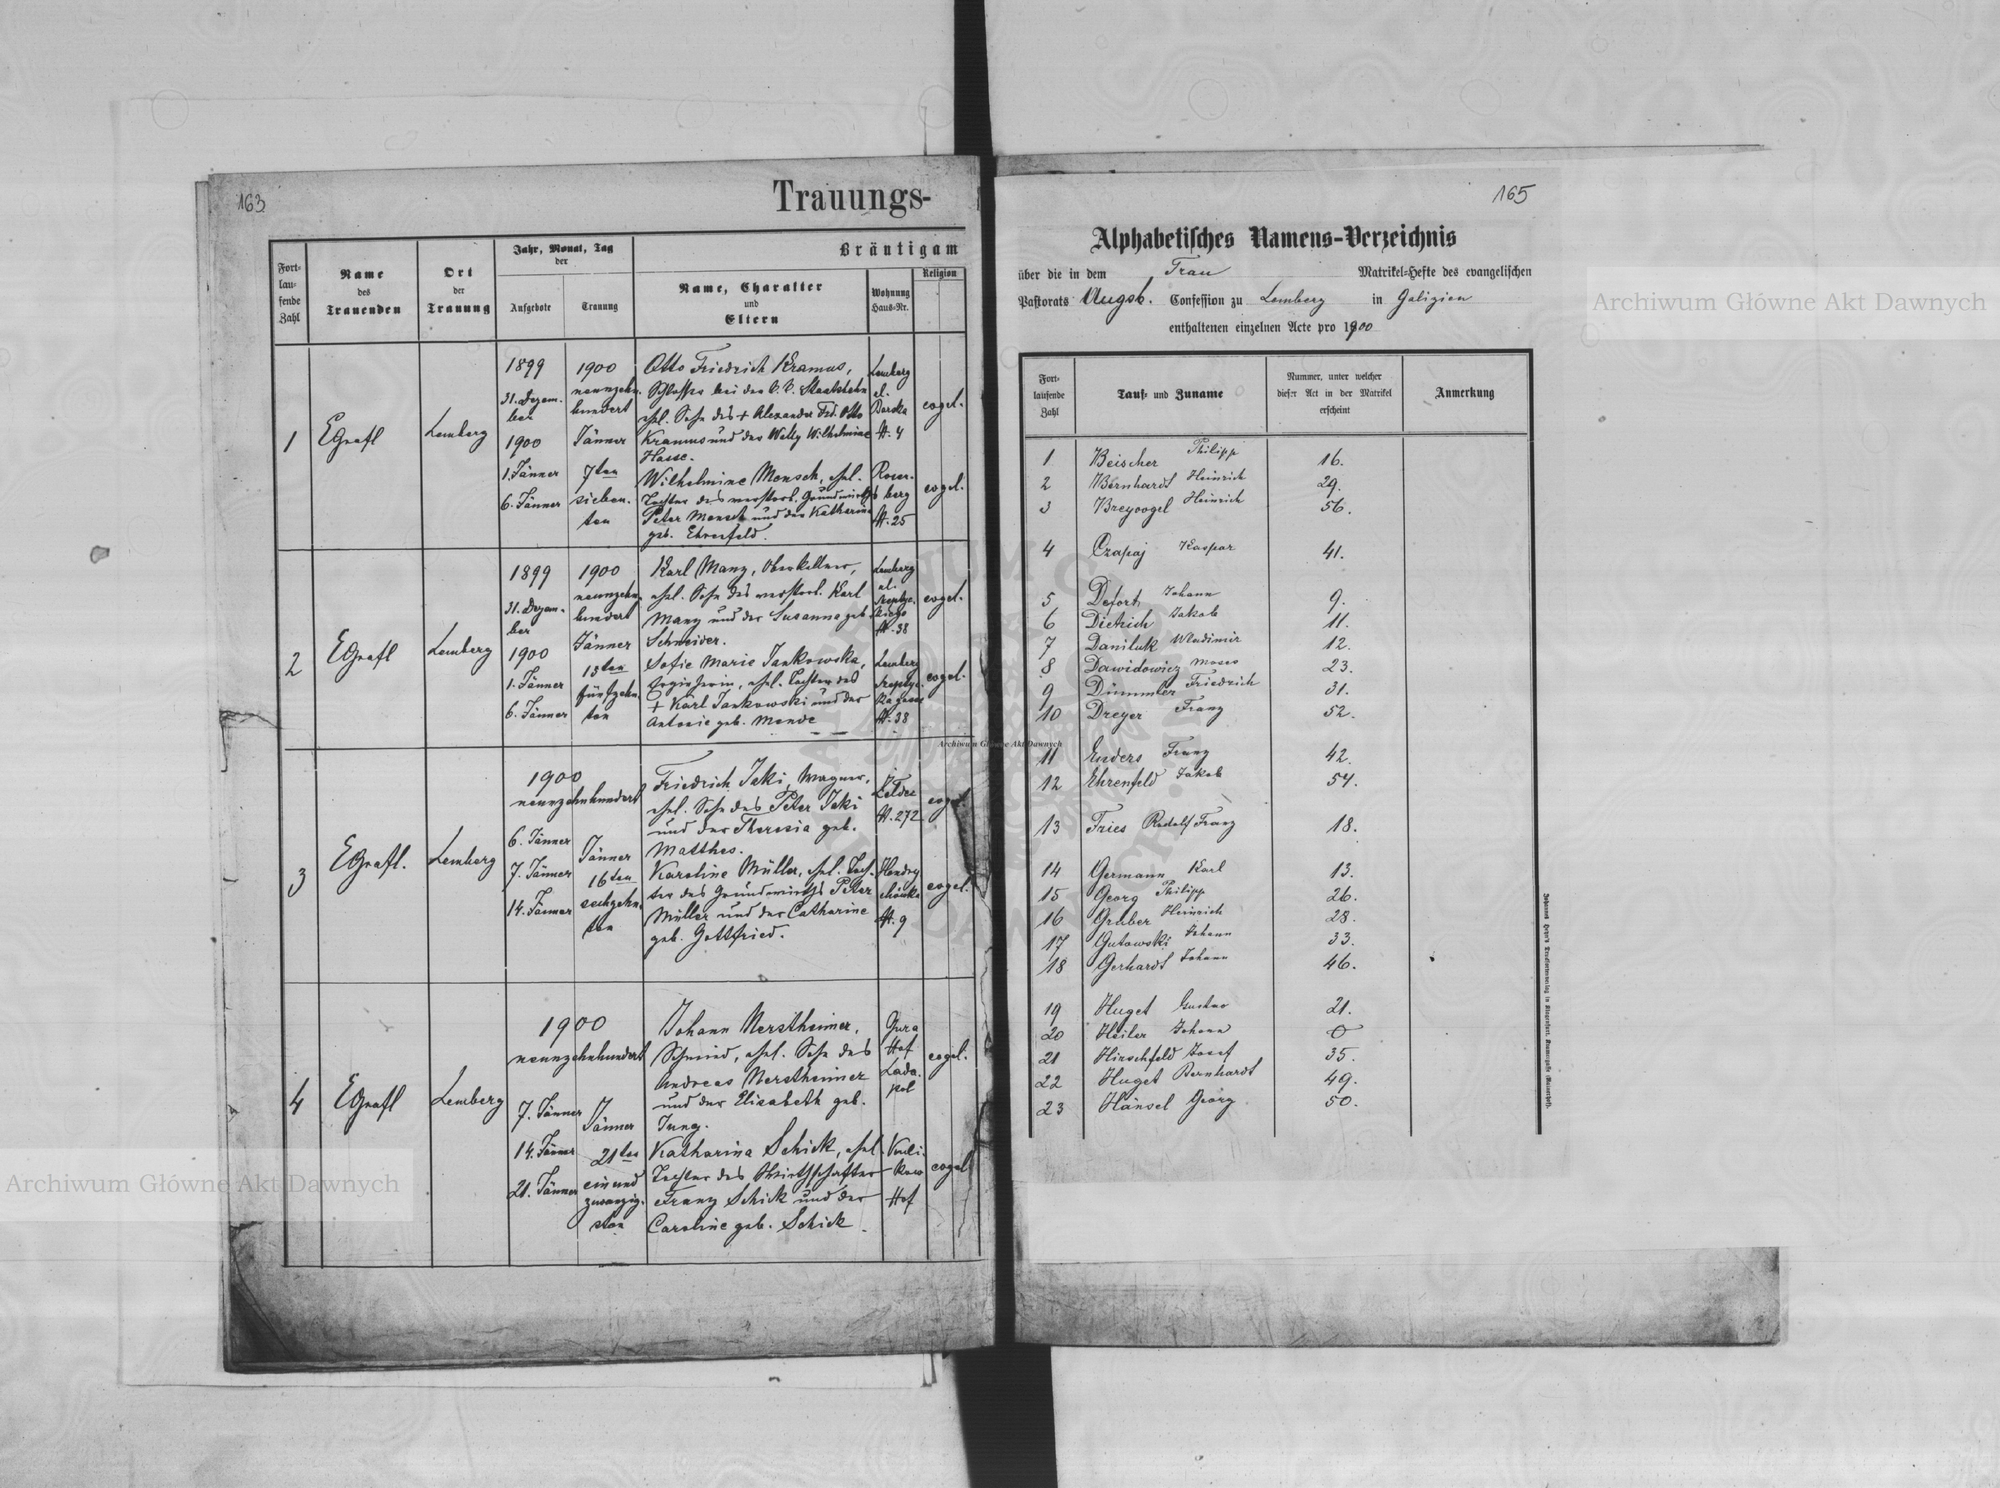 163
Trauungs-
Fort-
lau-
fende
Zahl
Name
des
Trauenden
Ort
der
Trauung
Jahr, Monat, Tag
der
Aufgebote
Trauung
Bräutigam
Name, Charakter
und
Eltern
Wohnung
Haus-Nr.
Religion
1
EGrafl
Lemberg
1899
31. Dezem-
ber
1900
1. Jänner
6. Jänner
1900
neunzehn-
hundert
Jänner
7ten
sieben-
ten
Otto Friedrich Kramus,
Schlosser bei der k. k. Staatsbahn
ehel. Sohn des + Alexander Frd. Otto
Kramus und der Welly Wilhelmine
Hasse.
Wilhelmine Mensch, ehel.
Tochter des verstorb. Grundwirths
Peter Mensch und der Katharine
geb. Ehrenfeld.
Lemberg
ul.
Berska
H. 4
Rosen-
berg
H. 25
evgel.
evgel.
2
EGrafl
Lemberg
1899
31. Dezem-
ber
1900
1. Jänner
6. Jänner
1900
neunzehn-
hundert
Jänner
15ten
fünfzehn-
ten
Karl Mang, Oberkellner,
ehel. Sohn des verstorb. Karl
Mang und der Susanna geb.
Schneider.
Sofie Marie Jankowska,
ehel. Tochter des
+ Karl Jankowski und der
Antonie geb. Mende
Lemberg
ul.
H. 38
Lemberg
H. 38
evgel.
evgel.
3
EGrafl.
Lemberg
1900
neunzehnhundert
6. Jänner
7. Jänner
14. Jänner
Jänner
16ten
sechzehn-
ten
Friedrich Jeki, Wagner,
ehel. Sohn des Peter Jeki
und der Theresia geb.
Matthes.
Karoline Müller, ehel. Toch-
ter des Grundwirths Peter
Müller und der Catharine
geb. Gottfried.
H. 272
H. 9
evgel.
evgel.
4
EGrafl
Lemberg
1900
neunzehnhundert
7. Jänner
14. Jänner
21. Jänner
Jänner
21ten
ein und
zwanzig-
sten
Johann Merstheimer,
Schmied, ehel. Sohn des
Andreas Merstheimer
und der Elisabeth geb.
Jung.
Katharina Schick, ehel.
Tochter des Wirthschafters
Franz Schick und der
Caroline geb. Schick.
Gura
Hof
Lada-
pol
Kuli-
kow
Hof
evgel.
evgel.
165
Alphabetisches Namens-Verzeichnis
über die in dem Trau Matrikel-Hefte des evangelischen
Pastorats Augsb. Confession zu Lemberg in Galizien
enthaltenen einzelnen Acte pro 1900
Fort-
laufende
Zahl
Tauf- und Zuname
Nummer, unter welcher
dieser Act in der Matrikel
erscheint
Anmerkung
1 Beischer Philipp 16.
2 Bernhardt Heinrich 29.
3 Breyvogel Heinrich 56.
4 Czapaj Kaspar 41.
5 Defort Johann 9.
6 Dietrich Jakob 11.
7 Daniluk Wladimir 12.
8 Dawidowicz Moses 23.
9 Dümmler Friedrich 31.
10 Dreyer Franz 52.
11 Enders Franz 42.
12 Ehrenfeld Jakob 54.
13 Fries Rudolf Franz 18.
14 Germann Karl 13.
15 Georg Philipp 26.
16 Gruber Heinrich 28.
17 Gutowski Johann 33.
18 Gerhardt Johann 46.
19 Huget Gustav 21.
20 Heiler Johann
21 Hirschfeld Josef 35.
22 Huget Bernhardt 49.
23 Hänsel Georg 50.
Archiwum Główne Akt Dawnych
Archiwum Główne Akt Dawnych
Archiwum Główne Akt Dawnych